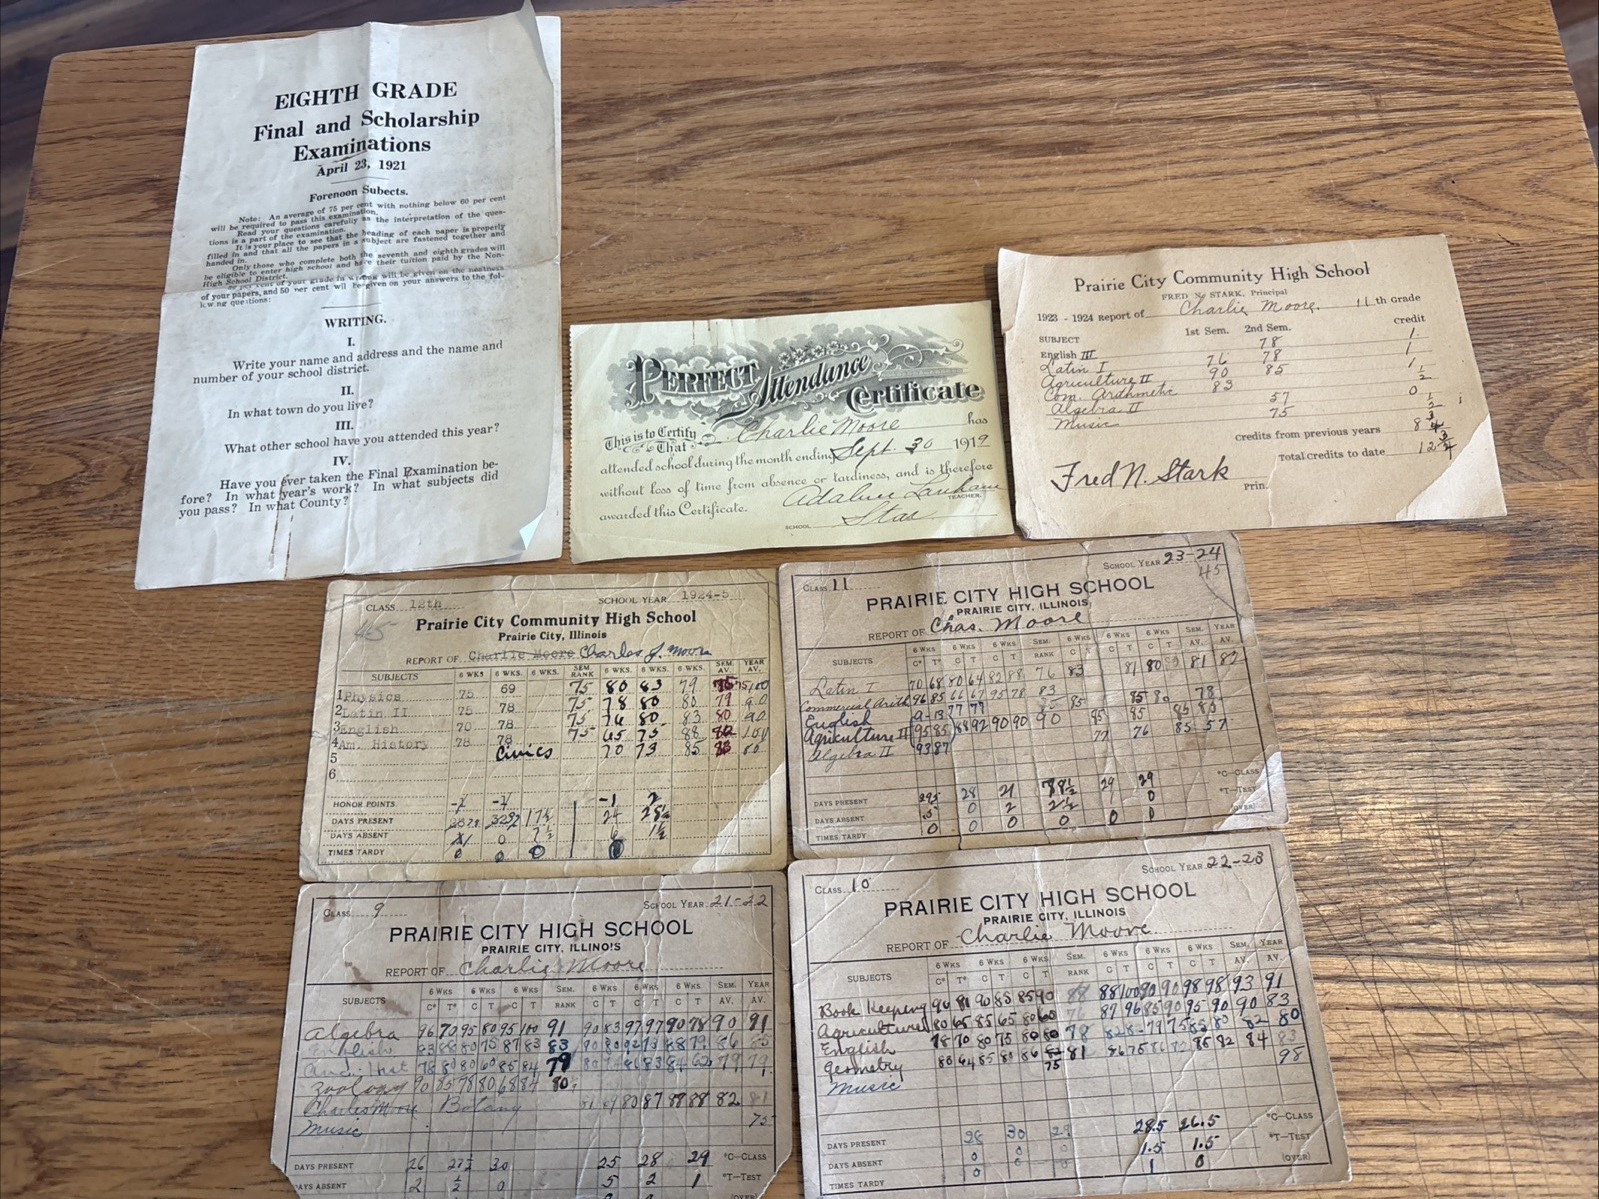 EIGHTH GRADE
Final and Scholarship
Examinations
April 23, 1921
Forenoon Subects.
Note: An average of 75 per cent with nothing below 60 per cent
will be required to pass this examination.
Read your questions carefully as the interpretation of the ques-
tions is a part of the examination.
It is your place to see that the heading of each paper is properly
filled in and that all the papers in a subject are fastened together and
handed in.
Only those who complete both the seventh and eighth grades will
be eligible to enter high school and have their tuition paid by the Non-
High School District.
per cent of your grade in will be given on the neatness
of your papers, and 50 per cent will be given on your answers to the fol-
questions:
WRITING.
I.
Write your name and address and the name and
number of your school district.
II.
In what town do you live?
III.
What other school have you attended this year?
IV.
Have you ever taken the Final Examination be-
fore? In what year's work? In what subjects did
you pass? In what County?
PERFECT Attendance Certificate
This is to Certify That Charlie Moore has
attended school during the month ending Sept. 30 1919
without loss of time from absence or tardiness, and is therefore
awarded this Certificate. TEACHER
SCHOOL Star
Prairie City Community High School
FRED N. STARK, Principal
1923 - 1924 Report of Charlie Moore. 11 th Grade
SUBJECT 1st Sem. 2nd Sem. Credit
English III 78 1
Latin I 76 78 1
Agriculture II 90 85 1
Com. Arithmetic 83 1/2
Algebra II 57 0
Music 75
Credits from previous years 8
Total credits to date 12
Fred N. Stark Prin.
CLASS 12th SCHOOL YEAR 1924-5
Prairie City Community High School
Prairie City, Illinois
REPORT OF Charlie Moore Charles J. Moore
SUBJECTS 6 WKS 6 WKS. 6 WKS. SEM. RANK 6 WKS. 6 WKS. 6 WKS. SEM. AV. YEAR AV.
1 Physics 75 69 75 80 83 79 75
2 Latin II 75 78 75 78 80 80 79
3 English 70 78 75 76 80 83 80
4 Am. History 78 78 75 65 75 88
5 Civics 70 73 85
6
HONOR POINTS
DAYS PRESENT
DAYS ABSENT
TIMES TARDY 0 0 0 0
CLASS 11 SCHOOL YEAR 23-24
45
PRAIRIE CITY HIGH SCHOOL
PRAIRIE CITY, ILLINOIS
REPORT OF Chas. Moore
SUBJECTS 6 WKS 6 WKS 6 WKS SEM. RANK 6 WKS 6 WKS 6 WKS SEM. AV. YEAR AV.
C* T* C T C T C T C T C T
Latin I 70 68 80 64 82 88 76 83 81 80 81 82
Commercial Arith 96 85 66 67 95 78 83
English 77 77 85 85 80 78
Agriculture II 95 85 88 92 90 90 90 95 85
Algebra II 93 87 77 76 85 57
*C-CLASS
DAYS PRESENT 28 29 29
*T-TEST
DAYS ABSENT 0 2 2½ 0
(OVER)
TIMES TARDY 0 0 0 0 0 0
CLASS 9 SCHOOL YEAR 21-22
PRAIRIE CITY HIGH SCHOOL
PRAIRIE CITY, ILLINOIS
REPORT OF Charlie Moore
SUBJECTS 6 WKS 6 WKS 6 WKS SEM. RANK 6 WKS 6 WKS 6 WKS SEM. AV. YEAR AV.
C* T* C T C T C T C T C T
Algebra 96 70 95 80 95 100 91 90 83 97 97 90 78 90 91
English 83 88 80 75 87 83 83
Anc. Hist 78 80 80 60 85 84 79 79 79
Zoology 90 85 78 80 68 84 80
Charles Moore Botany 80 87 89 88 82 81
Music 75
DAYS PRESENT 26 27½ 30 25 28 29 *C-CLASS
DAYS ABSENT 2 ½ 0 5 2 1 *T-TEST
(OVER)
CLASS 10 SCHOOL YEAR 22-23
PRAIRIE CITY HIGH SCHOOL
PRAIRIE CITY, ILLINOIS
REPORT OF Charlie Moore
SUBJECTS 6 WKS 6 WKS 6 WKS SEM. RANK 6 WKS 6 WKS 6 WKS SEM. AV. YEAR AV.
C* T* C T C T C T C T C T
Book Keeping 90 81 90 85 85 90 88 88 100 90 90 98 98 93 91
Agriculture 80 65 85 65 80 60 76 87 96 85 90 95 90 90 83
English 78 70 80 75 80 80 78 79 75 85 80 82 80
Geometry 80 64 85 80 86 81 86 75 85 82 84 83
Music 75 98
*C-CLASS
DAYS PRESENT 28 30 29 28.5 26.5
*T-TEST
DAYS ABSENT 0 0 0 1.5 1.5
(OVER)
TIMES TARDY 0 1 0